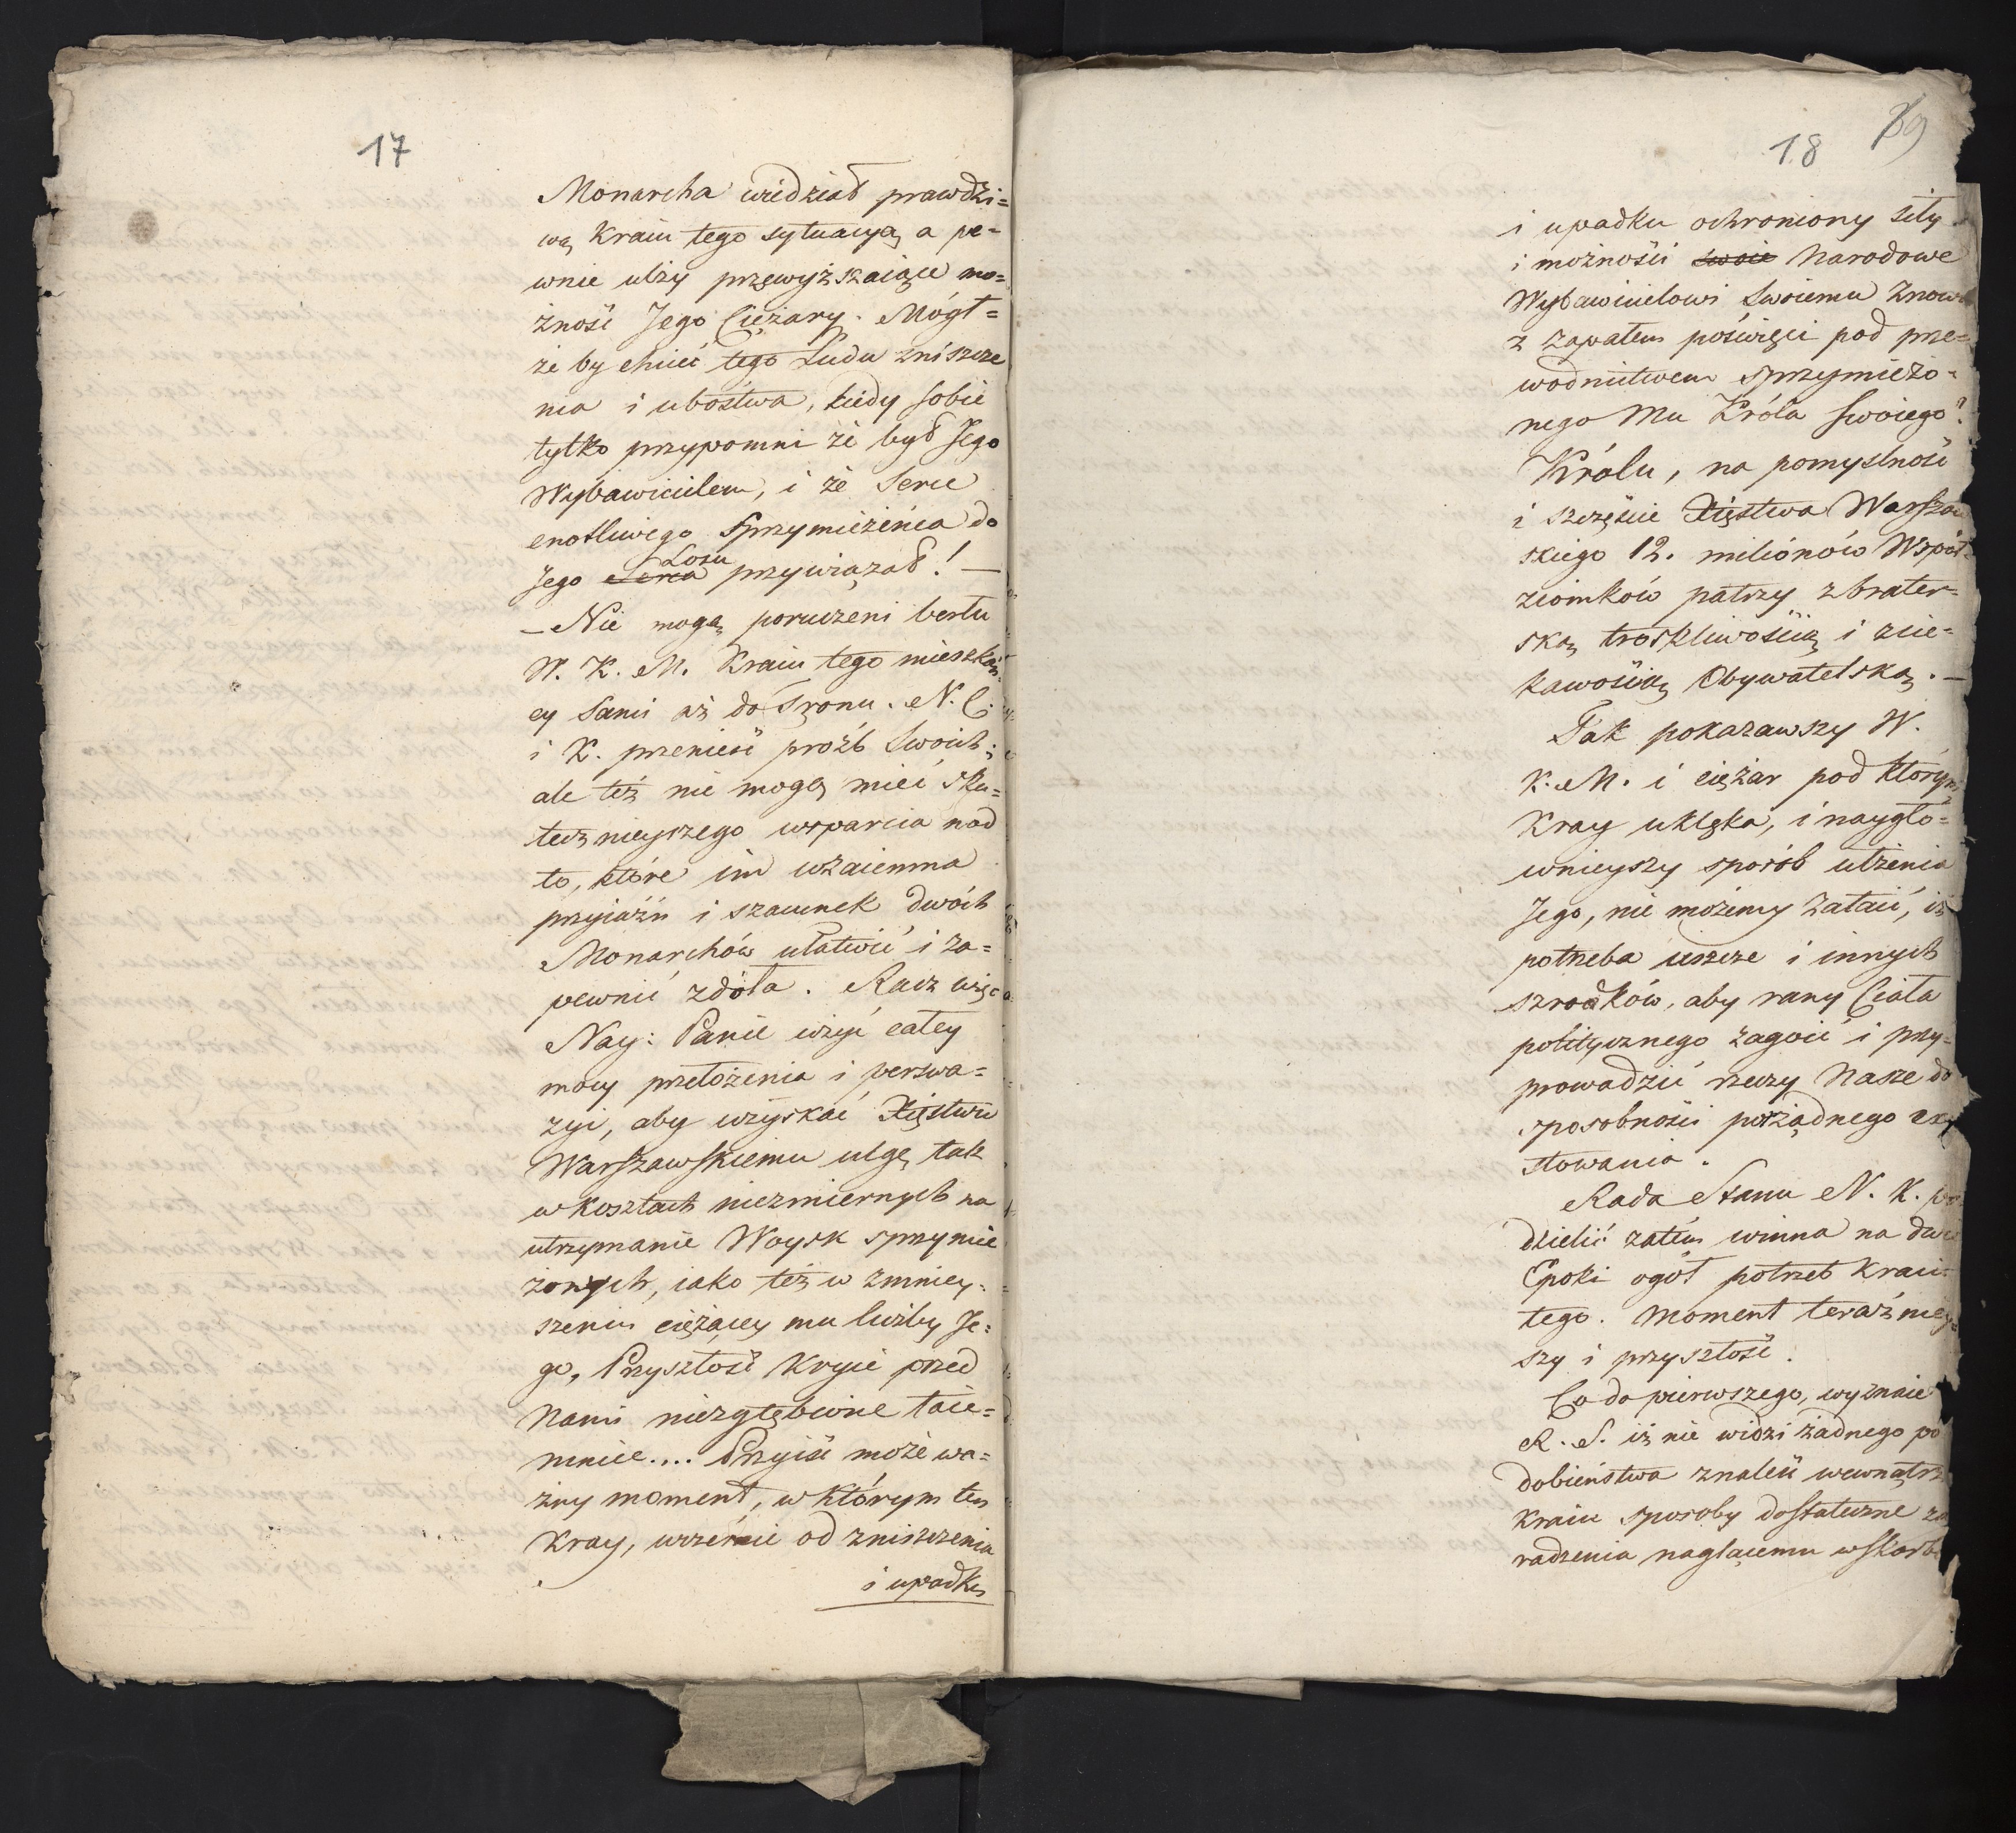 17
Monarcha widział prawdzi=
wą Kraiu tego sytuacyą a pe=
wnie ulży przewyższaiące mo=
żność Jego Ciężary. Mógł=
że by chcieć tego Ludu zniszcze
nia i ubóstwa, kiedy sobie
tylko przypomni że był Jego
Wybawicielem, i że Serce
cnotliwego Sprzymierzeńca do
Jego Serca Losu przywiązał! —
— Nie mogą poruczeni berłu
W. K. M. Kraiu tego mieszkań=
cy Sami aż do Tronu. N. C.
i K. przenieść prozb Swoich;
ale też nie mogą mieć sku=
tecznieyszego wsparcia nad
to, które im wzaiemna
przyiaźń i szacunek dwóch
Monarchów ułatwić i za=
pewnić zdoła. Racz więc
Nay: Panie użyć całey
mocy przełożenia i perswa=
zyi, aby uzyskać Xięstwu
Warszawskiemu ulgę tak
w kosztach niezmiernych na
utrzymanie Woysk sprzymie
żonych, iako też w zmniey=
szeniu ciężącey mu liczby Je=
go, Przyszłość kryie przed
Nami niezgłębione taie=
mnice.... Przyiść może wa=
żny moment, w którym ten
Kray, wcześnie od zniszczenia
i upadku
18
89
i upadku ochroniony siły
i możności swoie Narodowe
Wybawicielowi Swoiemu znowu
z zapałem poświęci pod prze=
wodnictwem sprzymieżo=
nego Mu Króla Swoiego?
Królu, na pomyslność
i szczęście Xięstwa Warszaw
skiego 12. milionów Współ=
ziomków patrzy z brater=
ską troskliwością i z cie=
kawością Obywatelską. —
Tak pokazawszy W.
K. M. i ciężar pod którym
Kray uklęka, i naygło=
wnieyszy sposób ulżenia
Jego, nie możemy zataić, iż
potrzeba ieszcze i innych
szrodków, aby rany Ciała
politycznego zagoić i przy=
prowadzić rzeczy Nasze do
sposobności porządnego exy
stowania.
Rada Stanu N. K. po
dzielić zatém winna na dwie
Epoki ogół potrzeb Kraiu
tego. Moment teraźniey=
szy i przyszłość.
Co do pierwszego, wyznaie
R. S. iż nie widzi żadnego po
dobieństwa znaleść wewnątrz
Kraiu sposoby dostateczne za
radzenia naglącemu w Skarbie